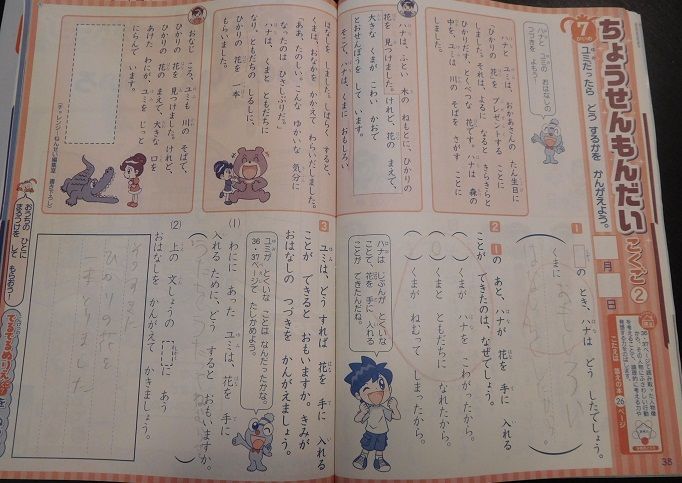 ちょうせんもんだい
こくご②
7
ユミだったら どう するかを かんがえよう。
月
日
ハナと ユミの おはなしの
つづきを よもう!
ハナと ユミは、おかあさんの たん生日に
「ひかりの 花」を プレゼントする ことに
しました。それは、よるに なると きらきらと
ひかりだす、とくべつな 花です。ハナは 森の
中を、ユミは 川の そばを さがす ことに
しました。
ハナは、ふとい 木の ねもとに、ひかりの
花を 見つけました。けれど、花の まえで、
大きな くまが こわい かおで
とおせんぼうを して います。
そこで、ハナは、くまに おもしろい
はなしを しました。しばらく すると、
くまは、おなかを かかえて わらいだしました。
「ああ、たのしい。こんな ゆかいな 気分に
なったのは ひさしぶりだ。」
ハナは、くまと ともだちに
なり、ともだちの しるしに、
ひかりの 花を 一本
もらいました。
おなじ ころ、ユミも 川の そばで、
ひかりの 花を 見つけました。けれど、
ひかりの 花の まえで、大きな 口を
あけた わにが、ユミを じっと
にらんで います。
1
のとき、ハナは どう したでしょう。
くまに
2
1の あと、ハナが 花を 手に 入れる
ことが できたのは、なぜでしょう。
( )くまが ハナを こわがったから。
( )くまと ともだちに なれたから。
( )くまが ねむって しまったから。
ハナは じぶんが とくいな
ことで、花を 手に 入れる
ことが できたんだね。
3
ユミは、どう すれば 花を 手に 入れる
ことが できると おもいますか。きみが
おはなしの つづきを かんがえましょう。
ユミが とくいな ことは なんだったかな。
36・37ページで
たしかめよう。
(1)
わにに あった ユミは、花を 手に
入れる ために、どう すると おもいますか。
(2)
上の 文しょうの に あう
おはなしを かんがえて かきましょう。
ひかりの花を
おうちの ひとに
まるつけを して
もらおう!
26ページ
38